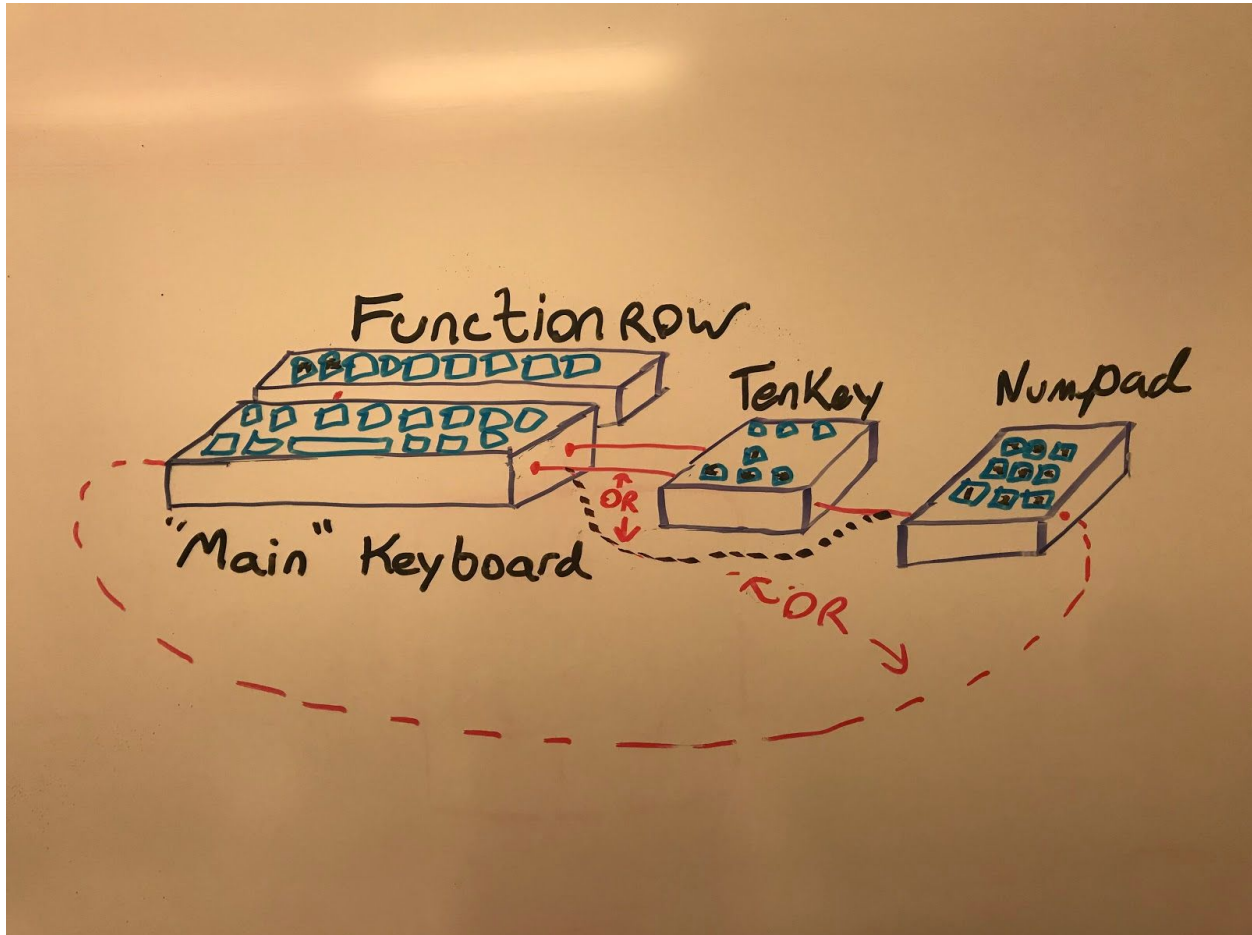 Function Row
TenKey
Numpad
OR
"Main" Keyboard
OR